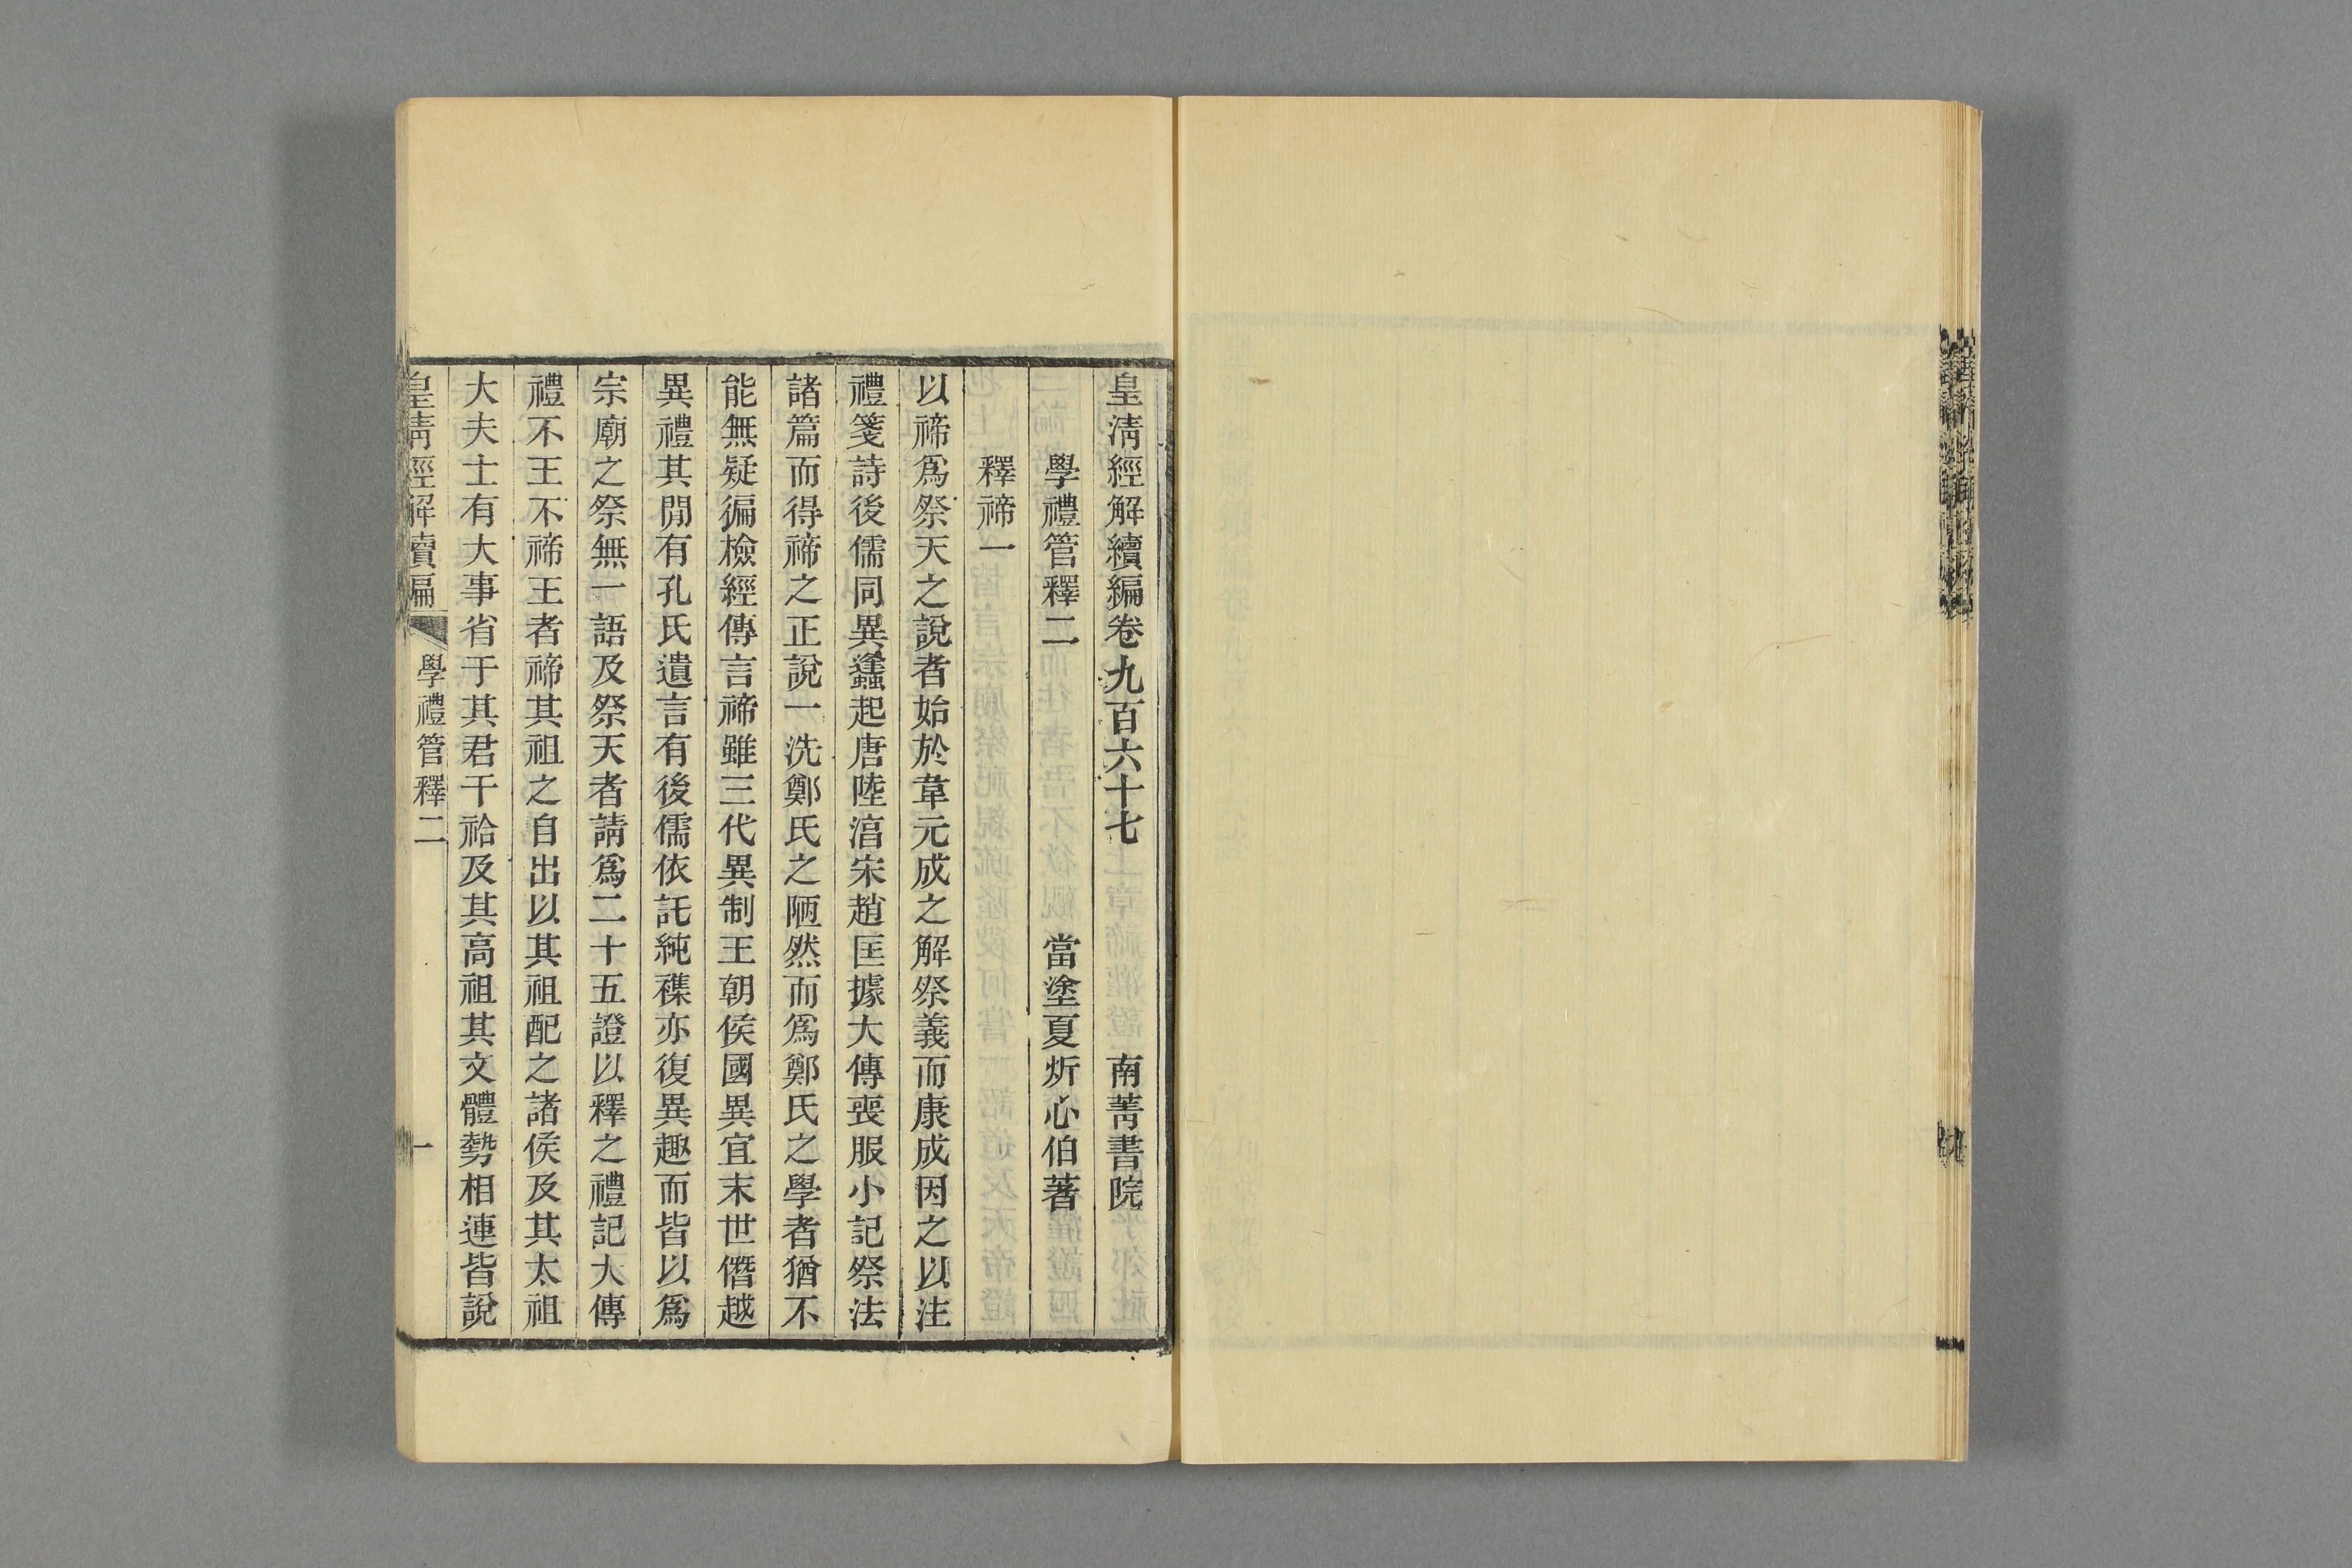 皇清經解續編卷九百六十七　南菁書院
學禮管釋二　當塗夏炘心伯著
釋禘一
以禘爲祭天之說者始於韋元成之解祭義而康成因之以注
禮箋詩後儒同異蠭起唐陸淳宋趙匡據大傳喪服小記祭法
諸篇而得禘之正說一洗鄭氏之陋然而爲鄭氏之學者猶不
能無疑徧檢經傳言禘雖三代異制王朝侯國異宜末世僭越
異禮其閒有孔氏遺言有後儒依託純襍亦復異趣而皆以爲
宗廟之祭無一語及祭天者請爲二十五證以釋之禮記大傳
禮不王不禘王者禘其祖之自出以其祖配之諸侯及其太祖
大夫士有大事省于其君干祫及其高祖其文體勢相連皆說
皇清經解續編　學禮管釋二　一